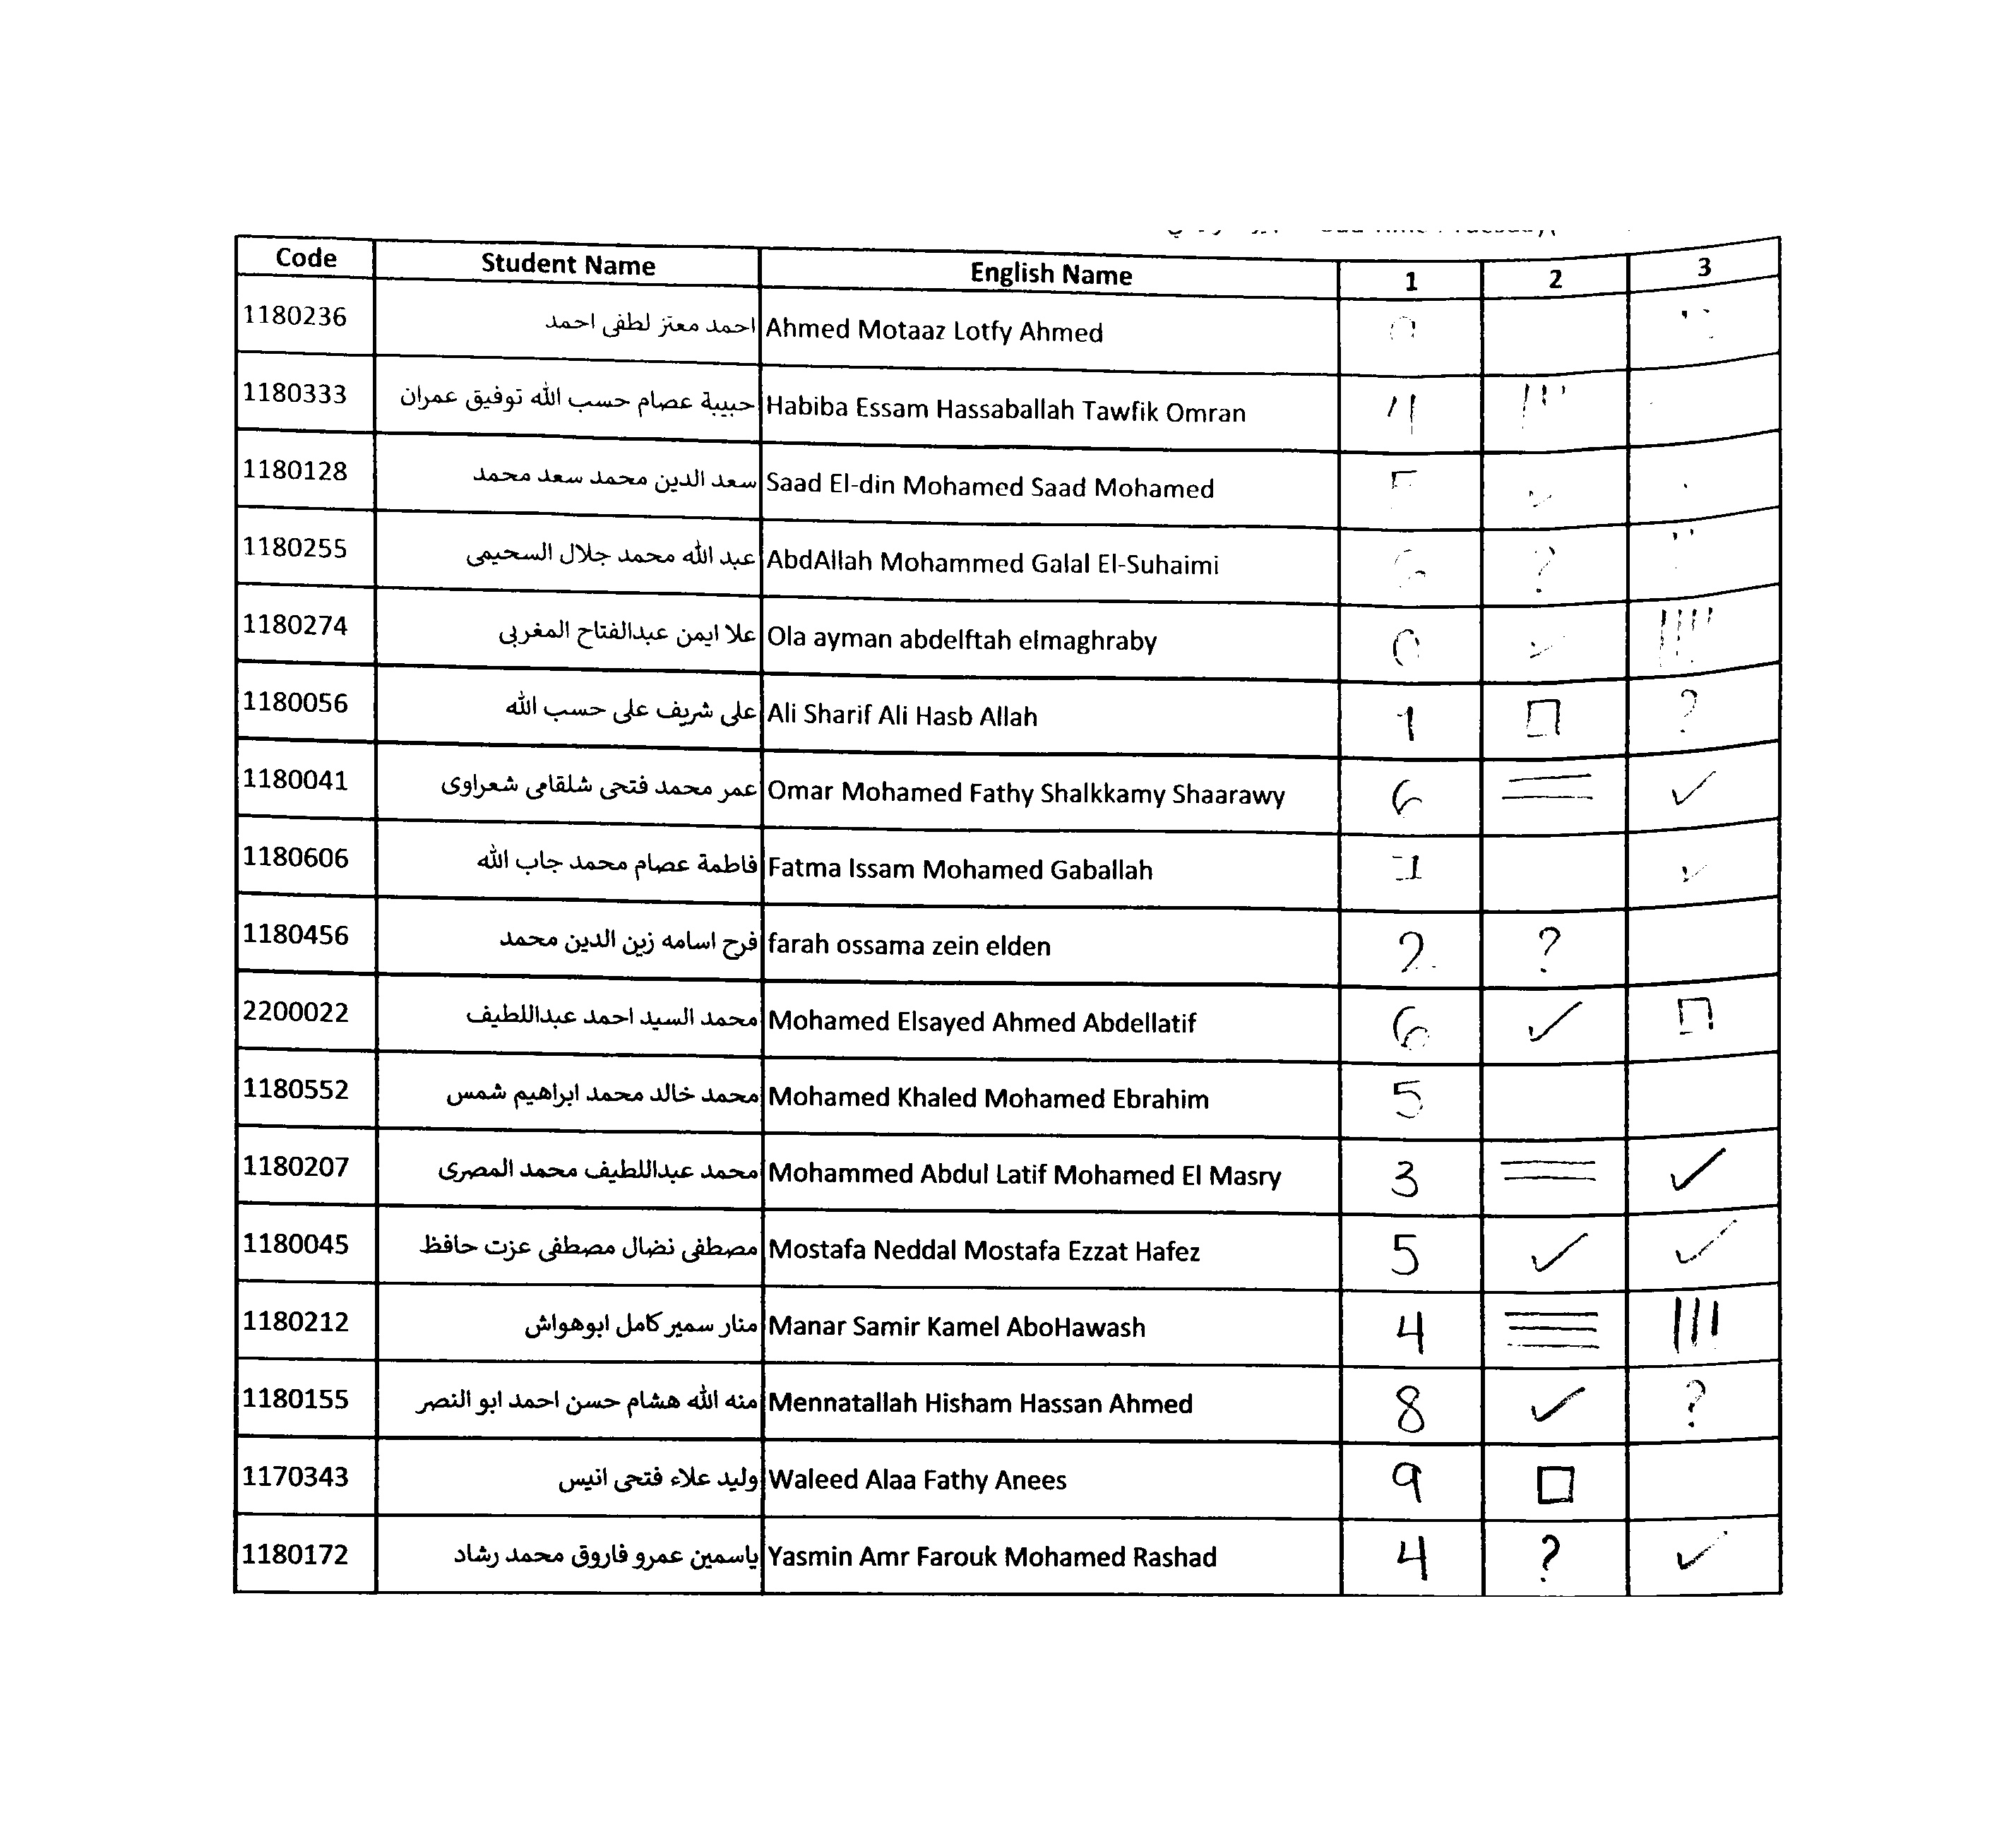 Code Student Name English Name 1 2 3
1180236 احمد معتز لطفى احمد Ahmed Motaaz Lotfy Ahmed
1180333 حبيبة عصام حسب الله توفيق عمران Habiba Essam Hassaballah Tawfik Omran 4 ||||
1180128 سعد الدين محمد سعد محمد Saad El-din Mohamed Saad Mohamed 5 ✓
1180255 عبد الله محمد جلال السحيمى AbdAllah Mohammed Galal El-Suhaimi 6 ?
1180274 علا ايمن عبدالفتاح المغربى Ola ayman abdelftah elmaghraby ✓ ||||
1180056 على شريف على حسب الله Ali Sharif Ali Hasb Allah 1 □ ?
1180041 عمر محمد فتحى شلقامى شعراوى Omar Mohamed Fathy Shalkkamy Shaarawy 6 = ✓
1180606 فاطمة عصام محمد جاب الله Fatma Issam Mohamed Gaballah ✓
1180456 فرح اسامه زين الدين محمد farah ossama zein elden 2 ?
2200022 محمد السيد احمد عبداللطيف Mohamed Elsayed Ahmed Abdellatif 6 ✓ □
1180552 محمد خالد محمد ابراهيم شمس Mohamed Khaled Mohamed Ebrahim 5
1180207 محمد عبداللطيف محمد المصرى Mohammed Abdul Latif Mohamed El Masry 3 = ✓
1180045 مصطفى نضال مصطفى عزت حافظ Mostafa Neddal Mostafa Ezzat Hafez 5 ✓ ✓
1180212 منار سمير كامل ابوهواش Manar Samir Kamel AboHawash 4 ≡ |||
1180155 منه الله هشام حسن احمد ابو النصر Mennatallah Hisham Hassan Ahmed 8 ✓ ?
1170343 وليد علاء فتحى انيس Waleed Alaa Fathy Anees 9 □
1180172 ياسمين عمرو فاروق محمد رشاد Yasmin Amr Farouk Mohamed Rashad 4 ? ✓